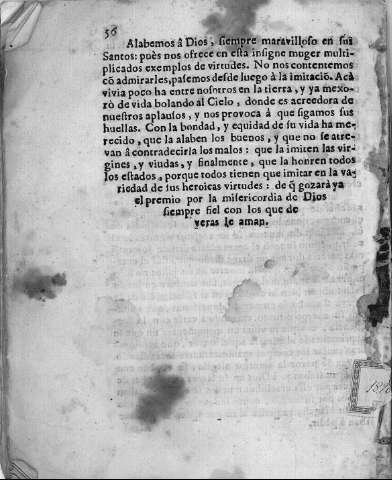 56
Alabemos â Dios, siempre maravilloso en sus
Santos: puès nos ofrece en esta insigne muger multi-
plicados exemplos de virtudes. No nos contentemos
cõ admirarles, pasemos desde luego à la imitaciõ. Acà
vivia poco ha entre nosotros en la tierra, y ya mexo-
rò de vida bolando al Cielo, donde es acreedora de
nuestros aplausos, y nos provoca à que sigamos sus
huellas. Con la bondad, y equidad de su vida ha me-
recido, que la alaben los buenos, y que no se atre-
van â contradecirla los malos: que la imiten las vir-
gines, y viudas, y finalmente, que la honren todos
los estados, porque todos tienen que imitar en la va-
riedad de sus heroicas virtudes: de q̃ gozarà ya
el premio por la misericordia de Dios
siempre fiel con los que de
veras le aman.